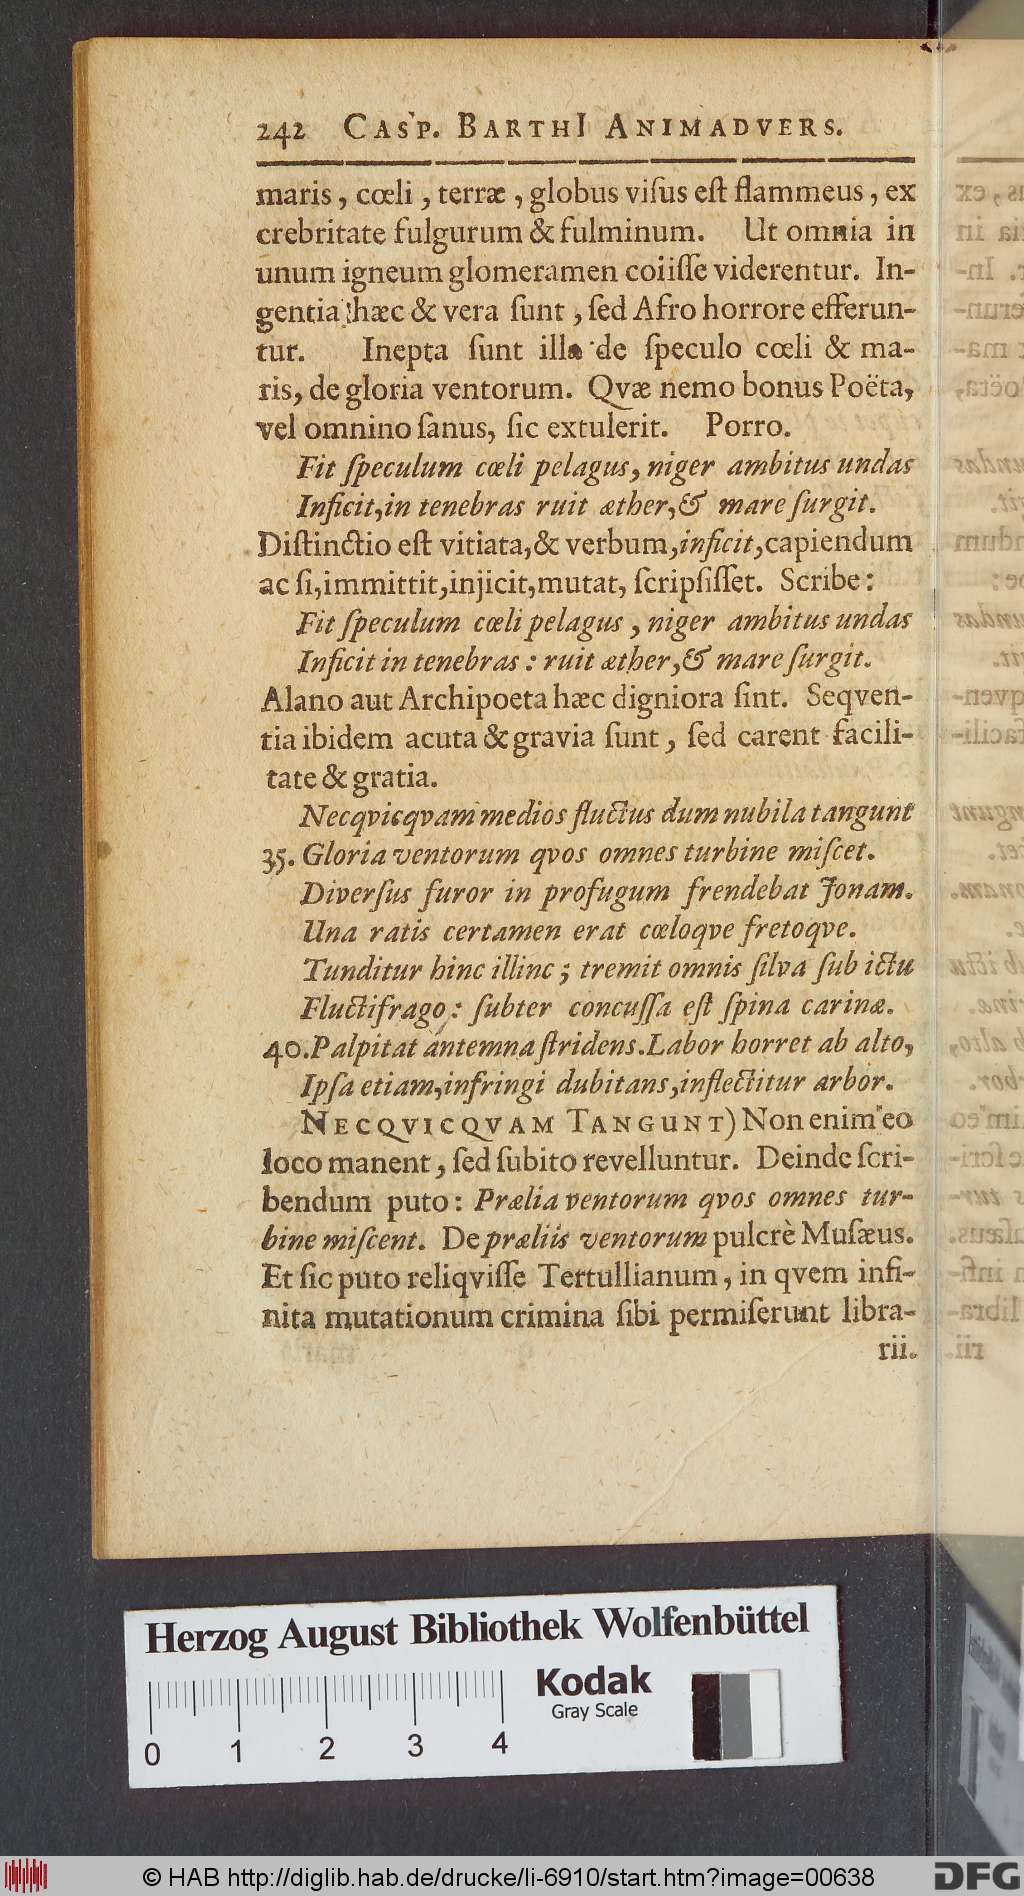 242 CASP. BARTHI ANIMADVERS.
maris, cœli, terræ, globus viſus eſt flammeus, ex
crebritate fulgurum & fulminum. Ut omnia in
unum igneum glomeramen coiiſſe viderentur. In-
gentia hæc & vera ſunt, ſed Afro horrore efferun-
tur. Inepta ſunt illa de ſpeculo cœli & ma-
ris, de gloria ventorum. Qvæ nemo bonus Poëta,
vel omnino ſanus, ſic extulerit. Porro.
Fit ſpeculum cœli pelagus, niger ambitus undas
Inficit, in tenebras ruit æther, & mare ſurgit.
Diſtinctio eſt vitiata, & verbum, inficit, capiendum
ac ſi, immittit, injicit, mutat, ſcripſiſſet. Scribe:
Fit ſpeculum cœli pelagus, niger ambitus undas
Inficit in tenebras: ruit æther, & mare ſurgit.
Alano aut Archipoeta hæc digniora ſint. Seqven-
tia ibidem acuta & gravia ſunt, ſed carent facili-
tate & gratia.
Necqvicqvam medios fluctus dum nubila tangunt
35. Gloria ventorum qvos omnes turbine miſcet.
Diverſus furor in profugum frendebat Jonam.
Una ratis certamen erat cœloqve fretoqve.
Tunditur hinc illinc; tremit omnis ſilva ſub ictu
Fluctifrago: ſubter concuſſa eſt ſpina carinæ.
40. Palpitat antemna ſtridens. Labor horret ab alto,
Ipſa etiam, infringi dubitans, inflectitur arbor.
NECQVICQVAM TANGUNT) Non enim eo
loco manent, ſed ſubito revelluntur. Deinde ſcri-
bendum puto: Prælia ventorum qvos omnes tur-
bine miſcent. De præliis ventorum pulcrè Muſæus.
Et ſic puto reliqviſſe Tertullianum, in qvem infi-
nita mutationum crimina ſibi permiſerunt libra-
rii.
Herzog August Bibliothek Wolfenbüttel
Kodak
Gray Scale
0 1 2 3 4
© HAB http://diglib.hab.de/drucke/li-6910/start.htm?image=00638
DFG